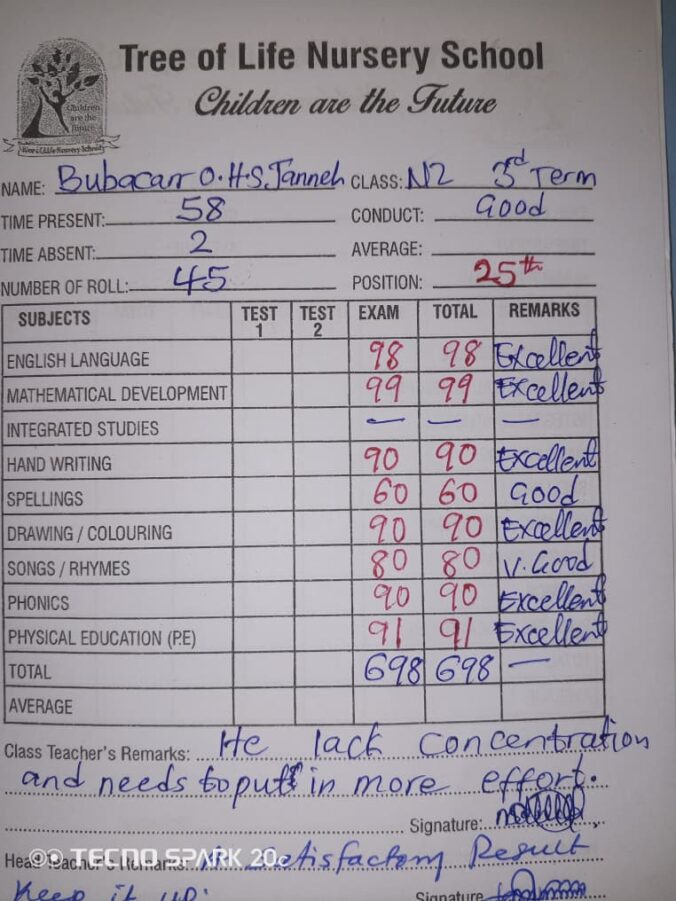 Tree of Life Nursery School
Children are the Future
Children
are the
Future
Tree of Life Nursery School
NAME: Bubacarr O.H.S. Janneh CLASS: N2 3rd Term
TIME PRESENT: 58 CONDUCT: Good
TIME ABSENT: 2 AVERAGE:
NUMBER OF ROLL: 45 POSITION: 25th
SUBJECTS TEST 1 TEST 2 EXAM TOTAL REMARKS
ENGLISH LANGUAGE 98 98 Excellent
MATHEMATICAL DEVELOPMENT 99 99 Excellent
INTEGRATED STUDIES — — —
HAND WRITING 90 90 Excellent
SPELLINGS 60 60 Good
DRAWING / COLOURING 90 90 Excellent
SONGS / RHYMES 80 80 V. Good
PHONICS 90 90 Excellent
PHYSICAL EDUCATION (P.E) 91 91 Excellent
TOTAL 698 698 —
AVERAGE
Class Teacher's Remarks: He lack concentration
and needs to put in more effort.
Signature:
Head Teacher's Remarks: A Satisfactory Result
TECNO SPARK 20
Keep it up.
Signature